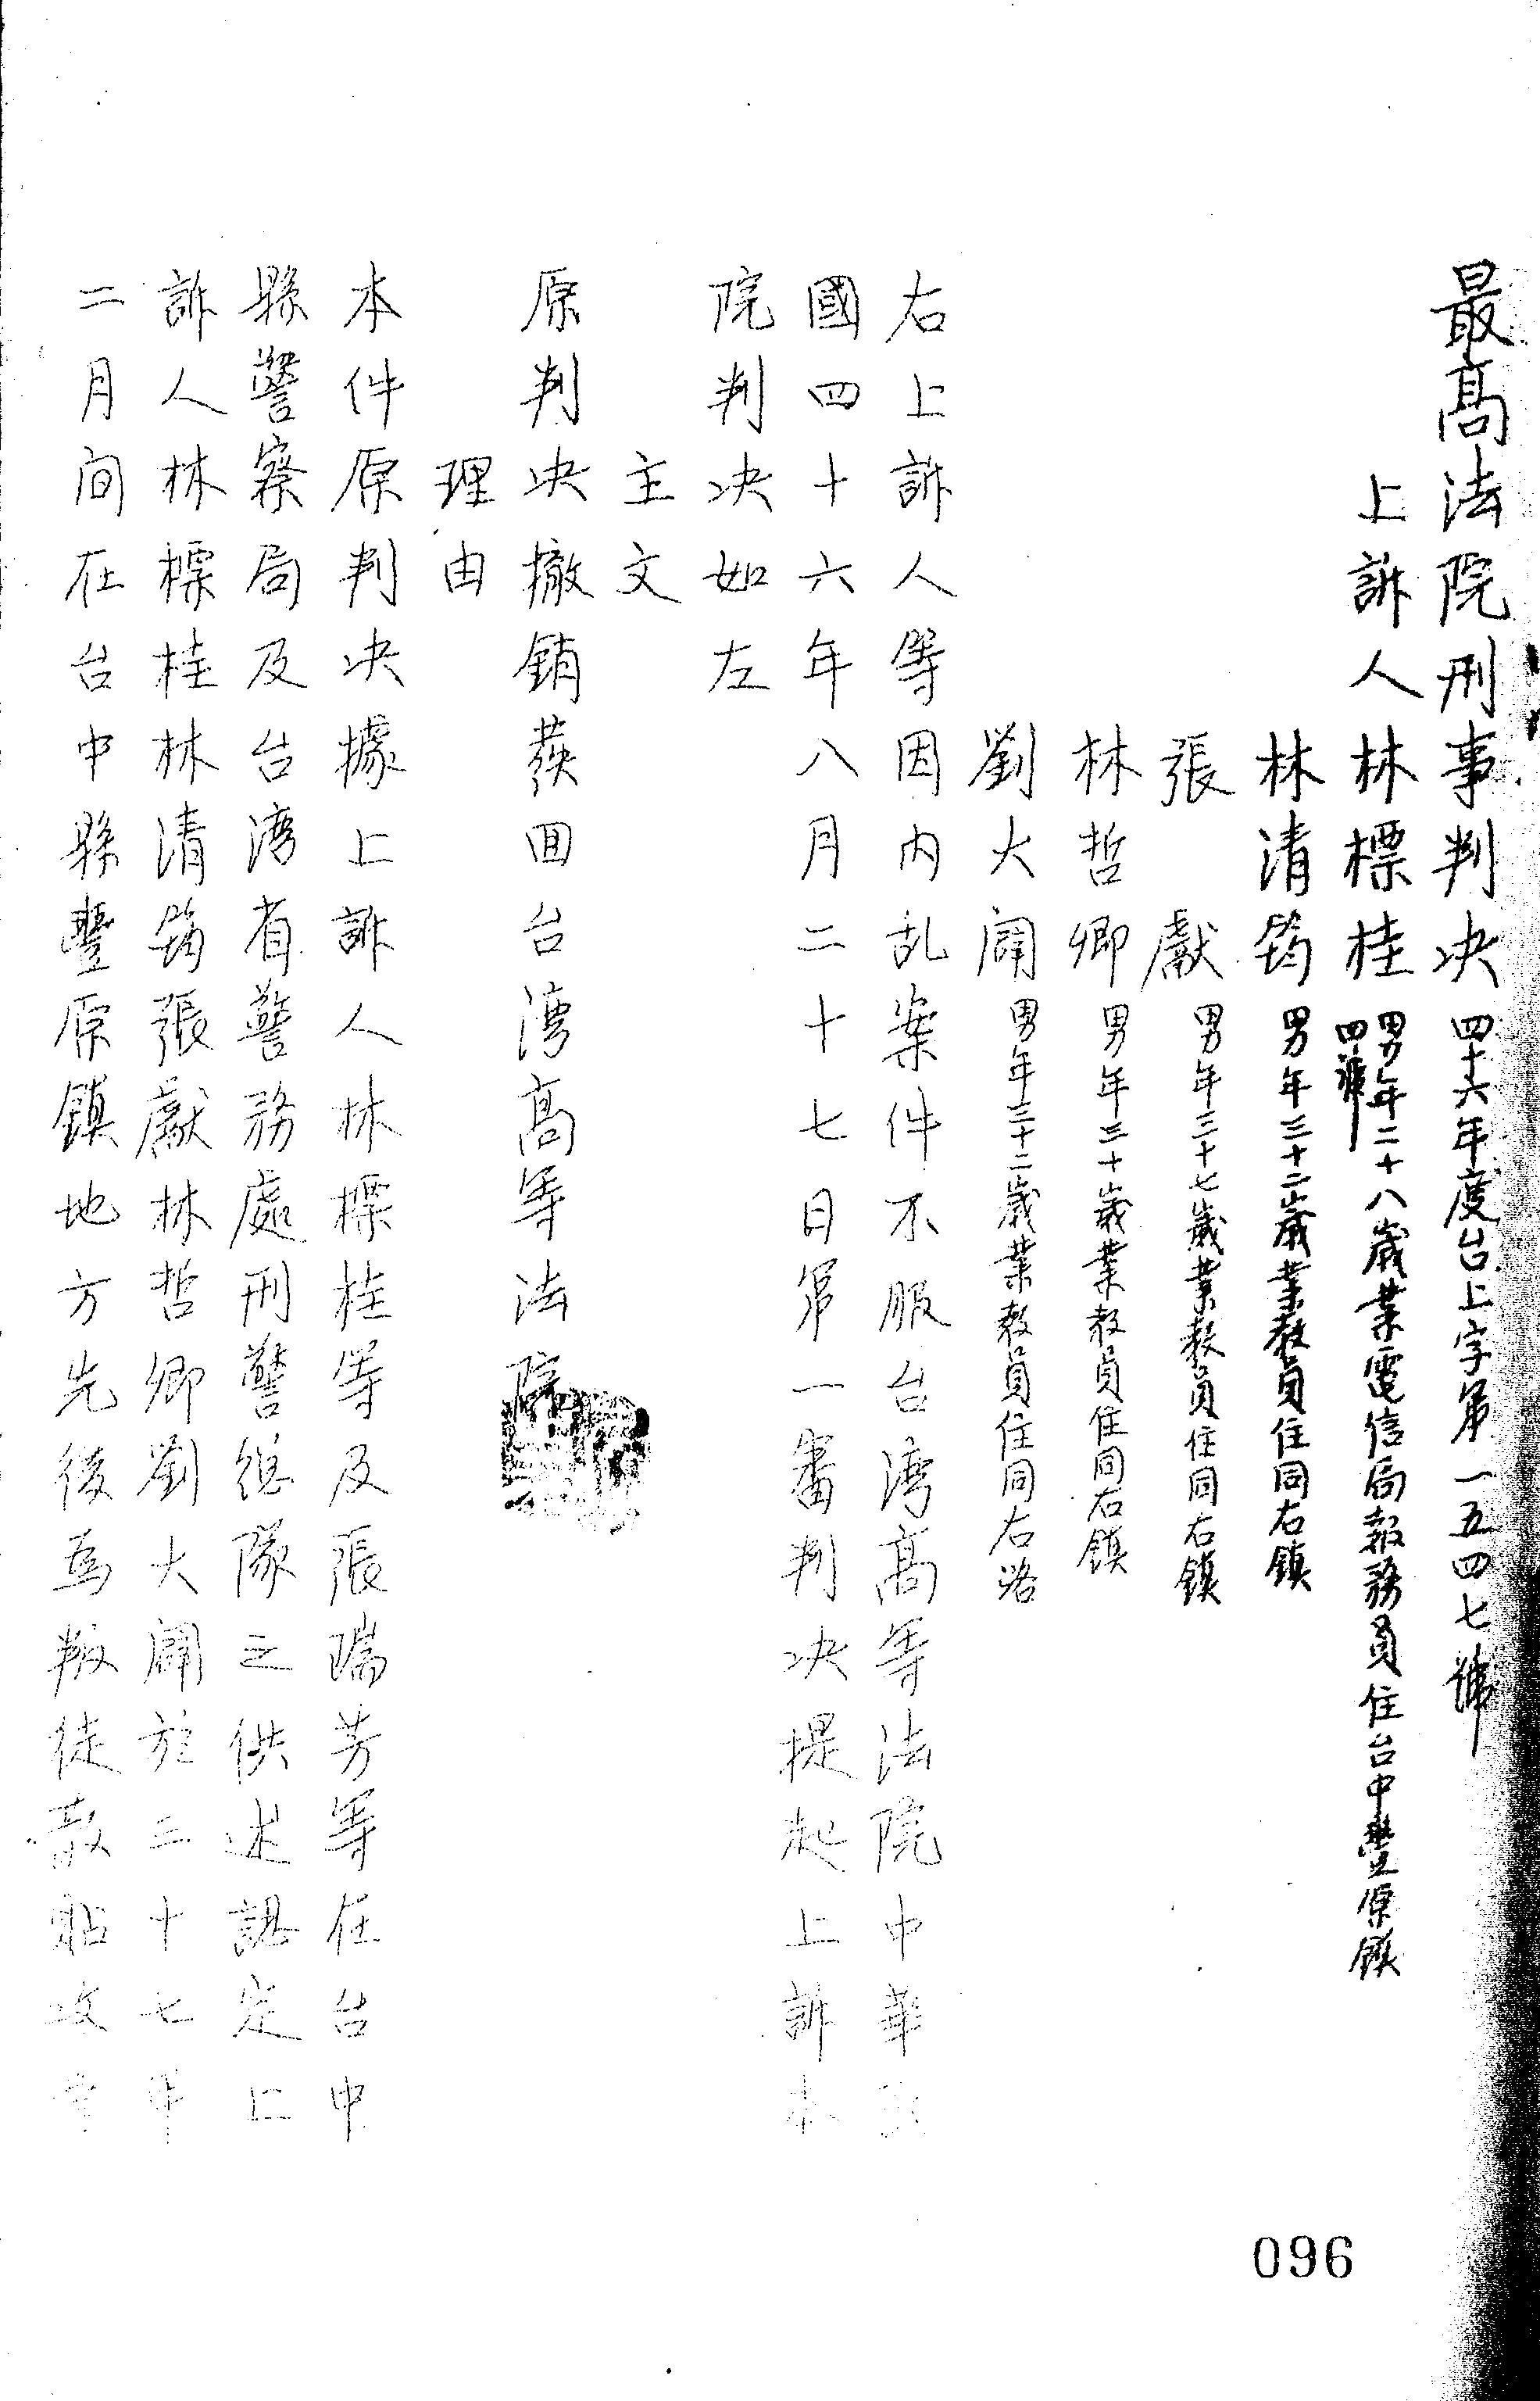 最高法院刑事判決 四十六年度台上字第一五四七號
上訴人林標桂 男年二十八歲業電信局報務員住台中豐原鎮
林清筠 男年三十二歲業教員住同右鎮
張獻 男年三十七歲業教員住同右鎮
林哲卿 男年三十歲業教員住同右鎮
劉大闢 男年三十二歲業教員住同右
右上訴人等因內乱案件不服台湾高等法院中華民
國四十六年八月二十七日第一審判決提起上訴本
院判決如左
主文
原判決撤銷發回台湾高等法院
理由
本件原判決據上訴人林標桂等及張瑞芳等在台中
縣警察局及台湾省警務處刑警總隊之供述認定上
訴人林標桂林清筠張獻林哲卿劉大闢於三十七年
二月间在台中縣豐原鎮地方先後為叛徒散貼攻
096